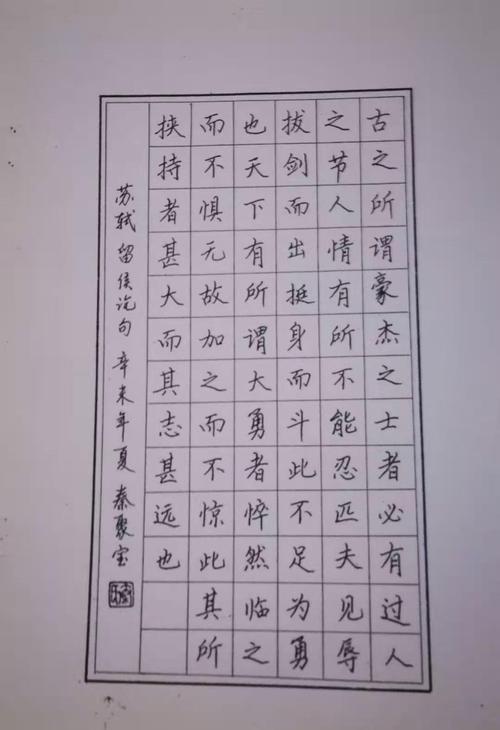 古之所谓豪杰之士者必有过人
之节人情有所不能忍匹夫见辱
拔剑而出挺身而斗此不足为勇
也天下有所谓大勇者悴然临之
而不惧无故加之而不惊此其所
挟持者甚大而其志甚远也
苏轼留侯论句 辛未年夏 秦聚宝